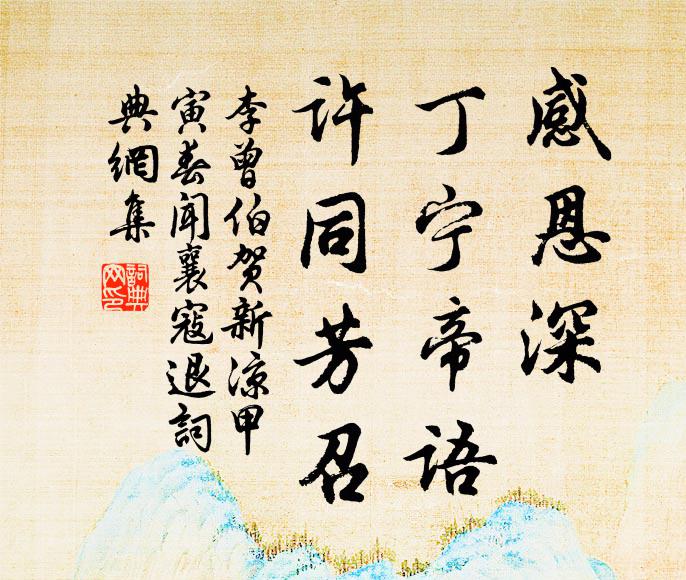 感恩深
丁宁帝语
许同芳召
李曾伯贺新凉甲
寅春闻襄寇退詞
典網集
詞典网印